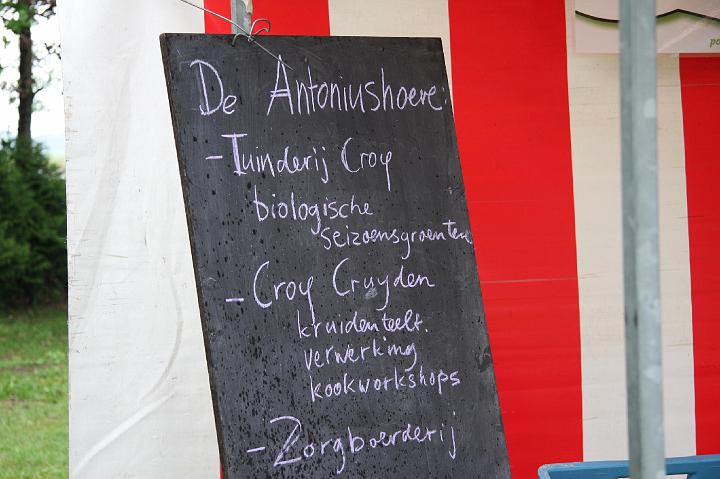 De Antoniushoeve:
- Tuinderij Croy
biologische
seizoensgroenten
- Croy Cruyden
kruidenteelt.
verwerking
kookworkshops
- Zorgboerderij